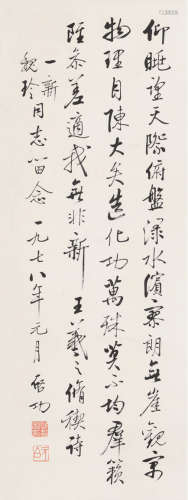 仰眺望天際俯盤淥水濱寥朗無崖觀寓
物理自陳大矣造化功萬殊莫不均群籟
雖參差適我無非新 王羲之脩禊詩
一新
魏玲同志留念 一九七八年元月 啟功